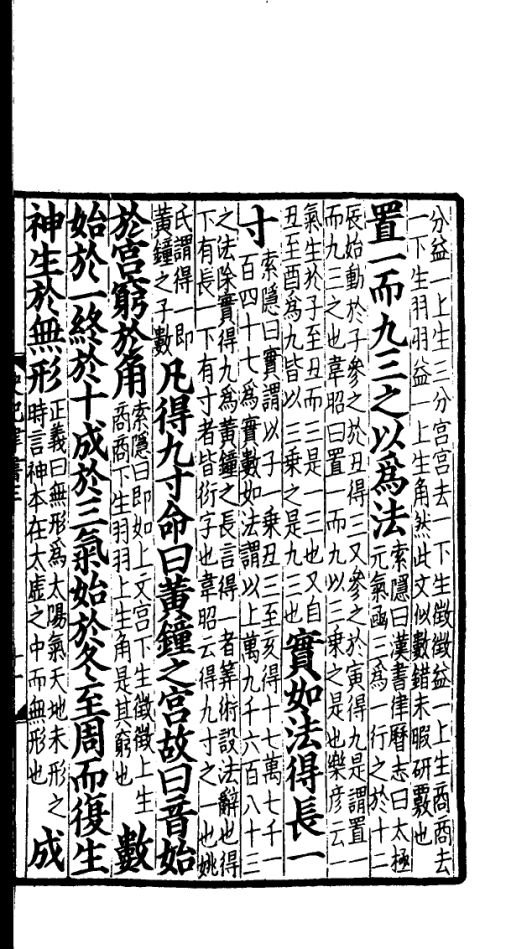 分益一上生三分宮宮去一下生徵徵益一上生商商去
一下生羽羽益一上生角然此文似數錯未暇研覈也
置一而九三之以爲法
索隱曰漢書律曆志曰太極
元氣函三爲一行之於十二
辰始動於子參之於丑得三又參之於寅得九是謂置一
而九三之也韋昭曰置一而九以三乘之是也樂彦云一
氣生於子至丑而三是一三也又自
丑至酉爲九皆以三乘之是九三也
實如法得長一
寸
索隱曰實謂以子一乘丑三至亥得十七萬七千一
百四十七爲實數如法謂以上萬九千六百八十三
之法除實得九爲黃鐘之長言得一者筭術設法辭也得
下有長一下有寸者皆衍子也韋昭云得九寸之一也姚
氏謂得一即
黃鐘之子數
凡得九寸命曰黃鐘之宮故曰音始
於宮窮於角
索隱曰即如上文宮下生徵徵上生
商商下生羽羽上生角是其窮也
數
始於一終於十成於三氣始於冬至周而復生
神生於無形
正義曰無形爲太陽氣天地未形之
時言神本在太虛之中而無形也
成